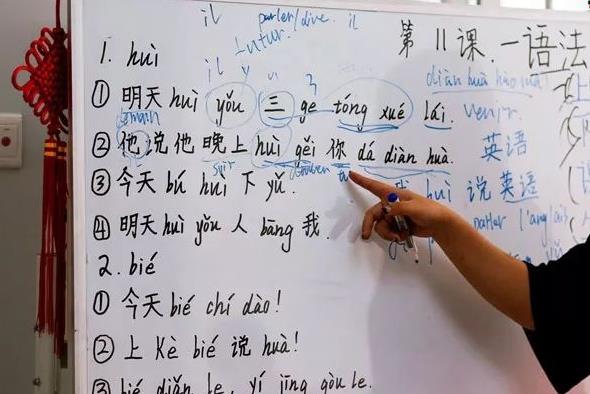 il parler/dire. il
futur.
第 11 课. 一语法
1. huì
il y
diàn huà hào mǎ
① 明天 huì yǒu 三 ge tóng xué lái. venir.
demain
② 他说他晚上 huì gěi 你 dá diàn huà. 英语
soir
③ 今天 bú huì 下 yǔ.
huì 说 英语
parler l'anglais
④ 明天 huì yǒu 人 bāng 我.
2. bié
① 今天 bié chí dào!
② 上 Kè bié 说 huà!
③ bié diǎn le, yí jīng gòu le.